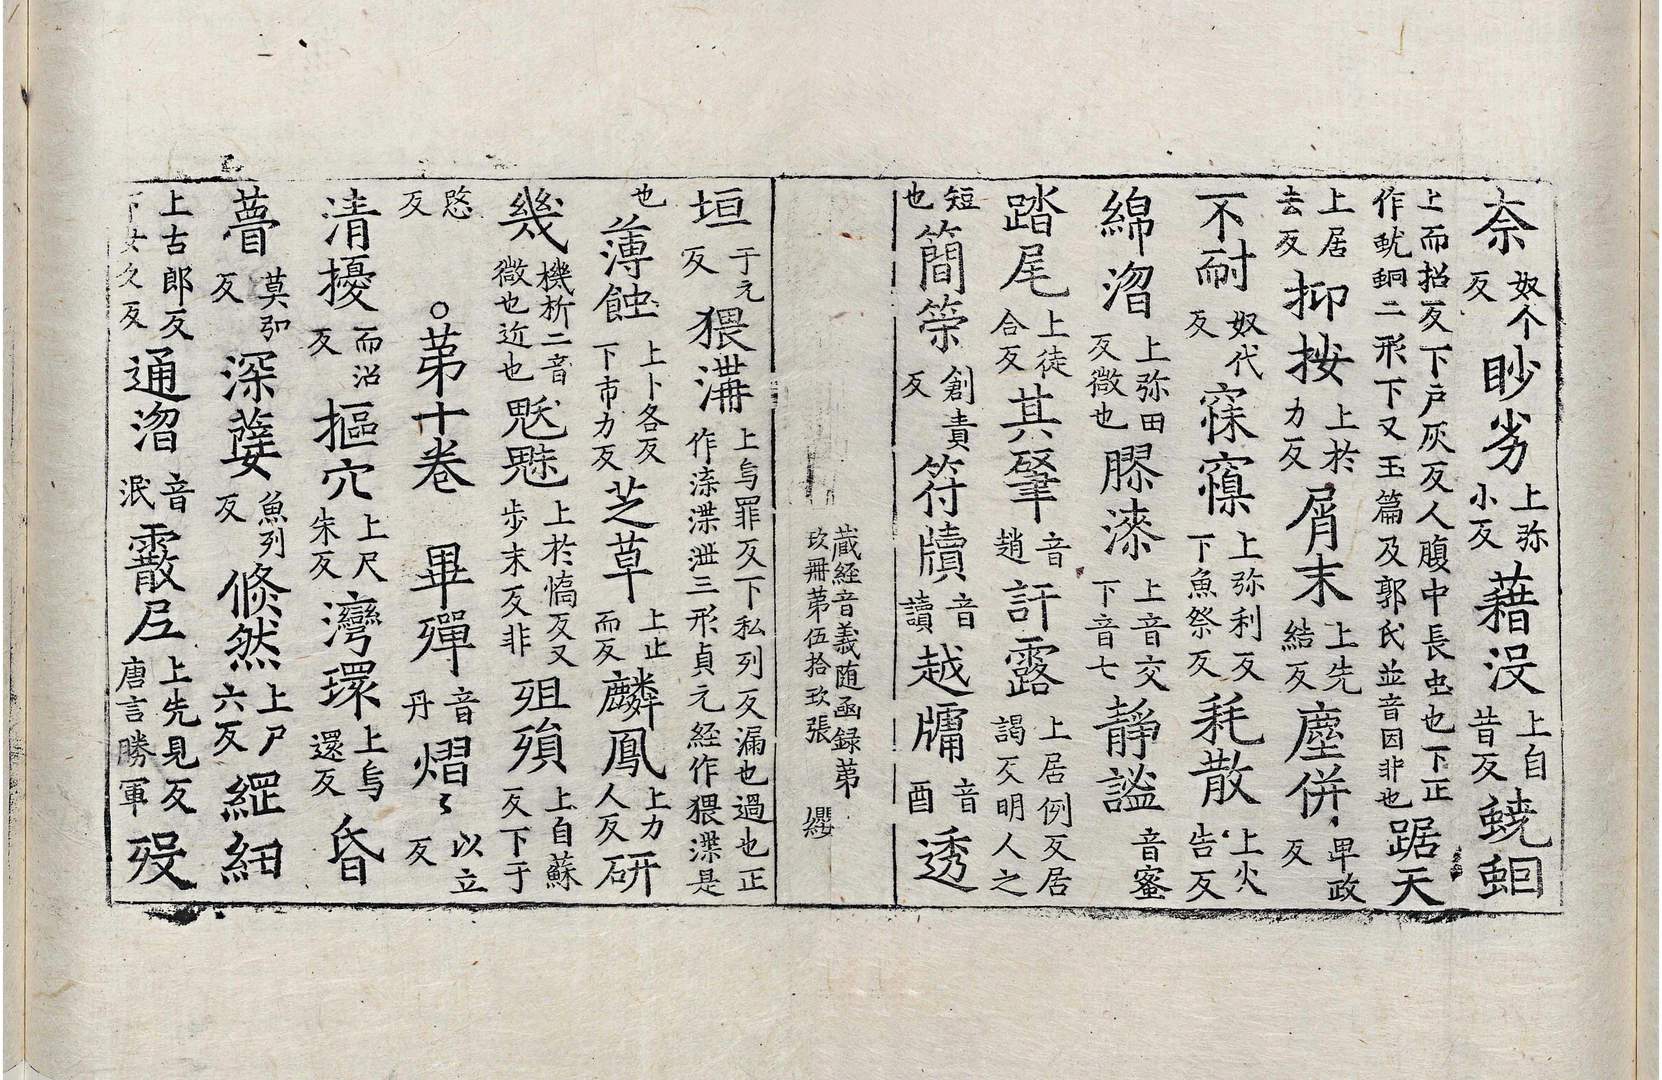 柰奴个反眇劣上弥小反藉没上自昔反蟯蛔
上而招反下户灰反人腹中長虫也下正作蚘蛕二形下又玉篇及郭氏並音因非也踞天
上居去反抑按上於力反屑末上先結反塵併卑政反
不耐奴代反寐寱上弥利反下魚祭反耗散上火告反
綿㳷上弥田反微也膠漆上音交下音七靜謐音蜜
踏尾上徒合反其肇音趙訐露上居例反居謁反明人之
短也簡筞創責反符牘音讀越牗音酉透
藏經音義随函録苐玖冊苐伍拾玖張 纓
垣于元反猥㵕上烏罪反下私列反漏也過也正作渫三形貞元經作猥渫是
也薄蝕上卜各反下市力反芝草上止而反麟鳳上力人反研
幾機析二音微也近也魃上於憍反又步末反非殂殞上自蘇反下于
愍反 ○苐十卷 畢殫音丹熠〻以立反
清擾而沼反摳穴上尺朱反灣環上烏還反昏
瞢莫弘反深㜸魚列反倏然上尸六反縆細
上古郎反下女久反通㳷音泯霰𡰱上先見反唐言勝軍歿